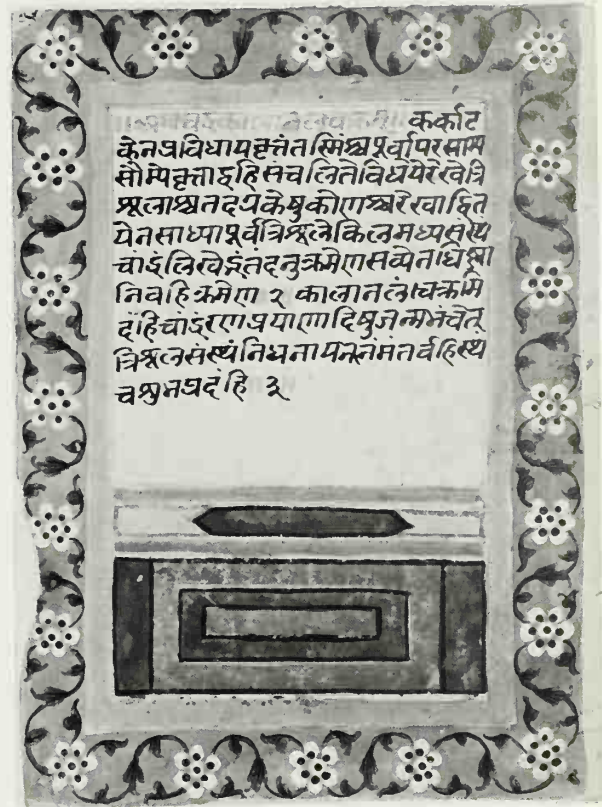 कर्काट
केनप्रविधायवृत्ततस्मिंश्चपूर्वापरसाम्य
सौम्यवृत्ताद्वहिसंचलितेविधेयेरेखेत्रि
श्रूलाश्चतदग्रकेषुकोणाश्चरेखाद्वित
येनसाध्यापूर्वत्रिश्रूलेकिलमध्यसंस्थ
चांद्रंलिखेद्भंतदनुक्रमेणसव्येनधिष्ण्या
निवहिक्रमेण २ कालानलंचक्रमि
दंहिचांद्ररणप्रयाणादिषुजन्मभंचेत्
त्रिश्रूलसंस्थंनिधनायनूनंमंतर्वहिस्थ
चश्रुभप्रदंहि ३